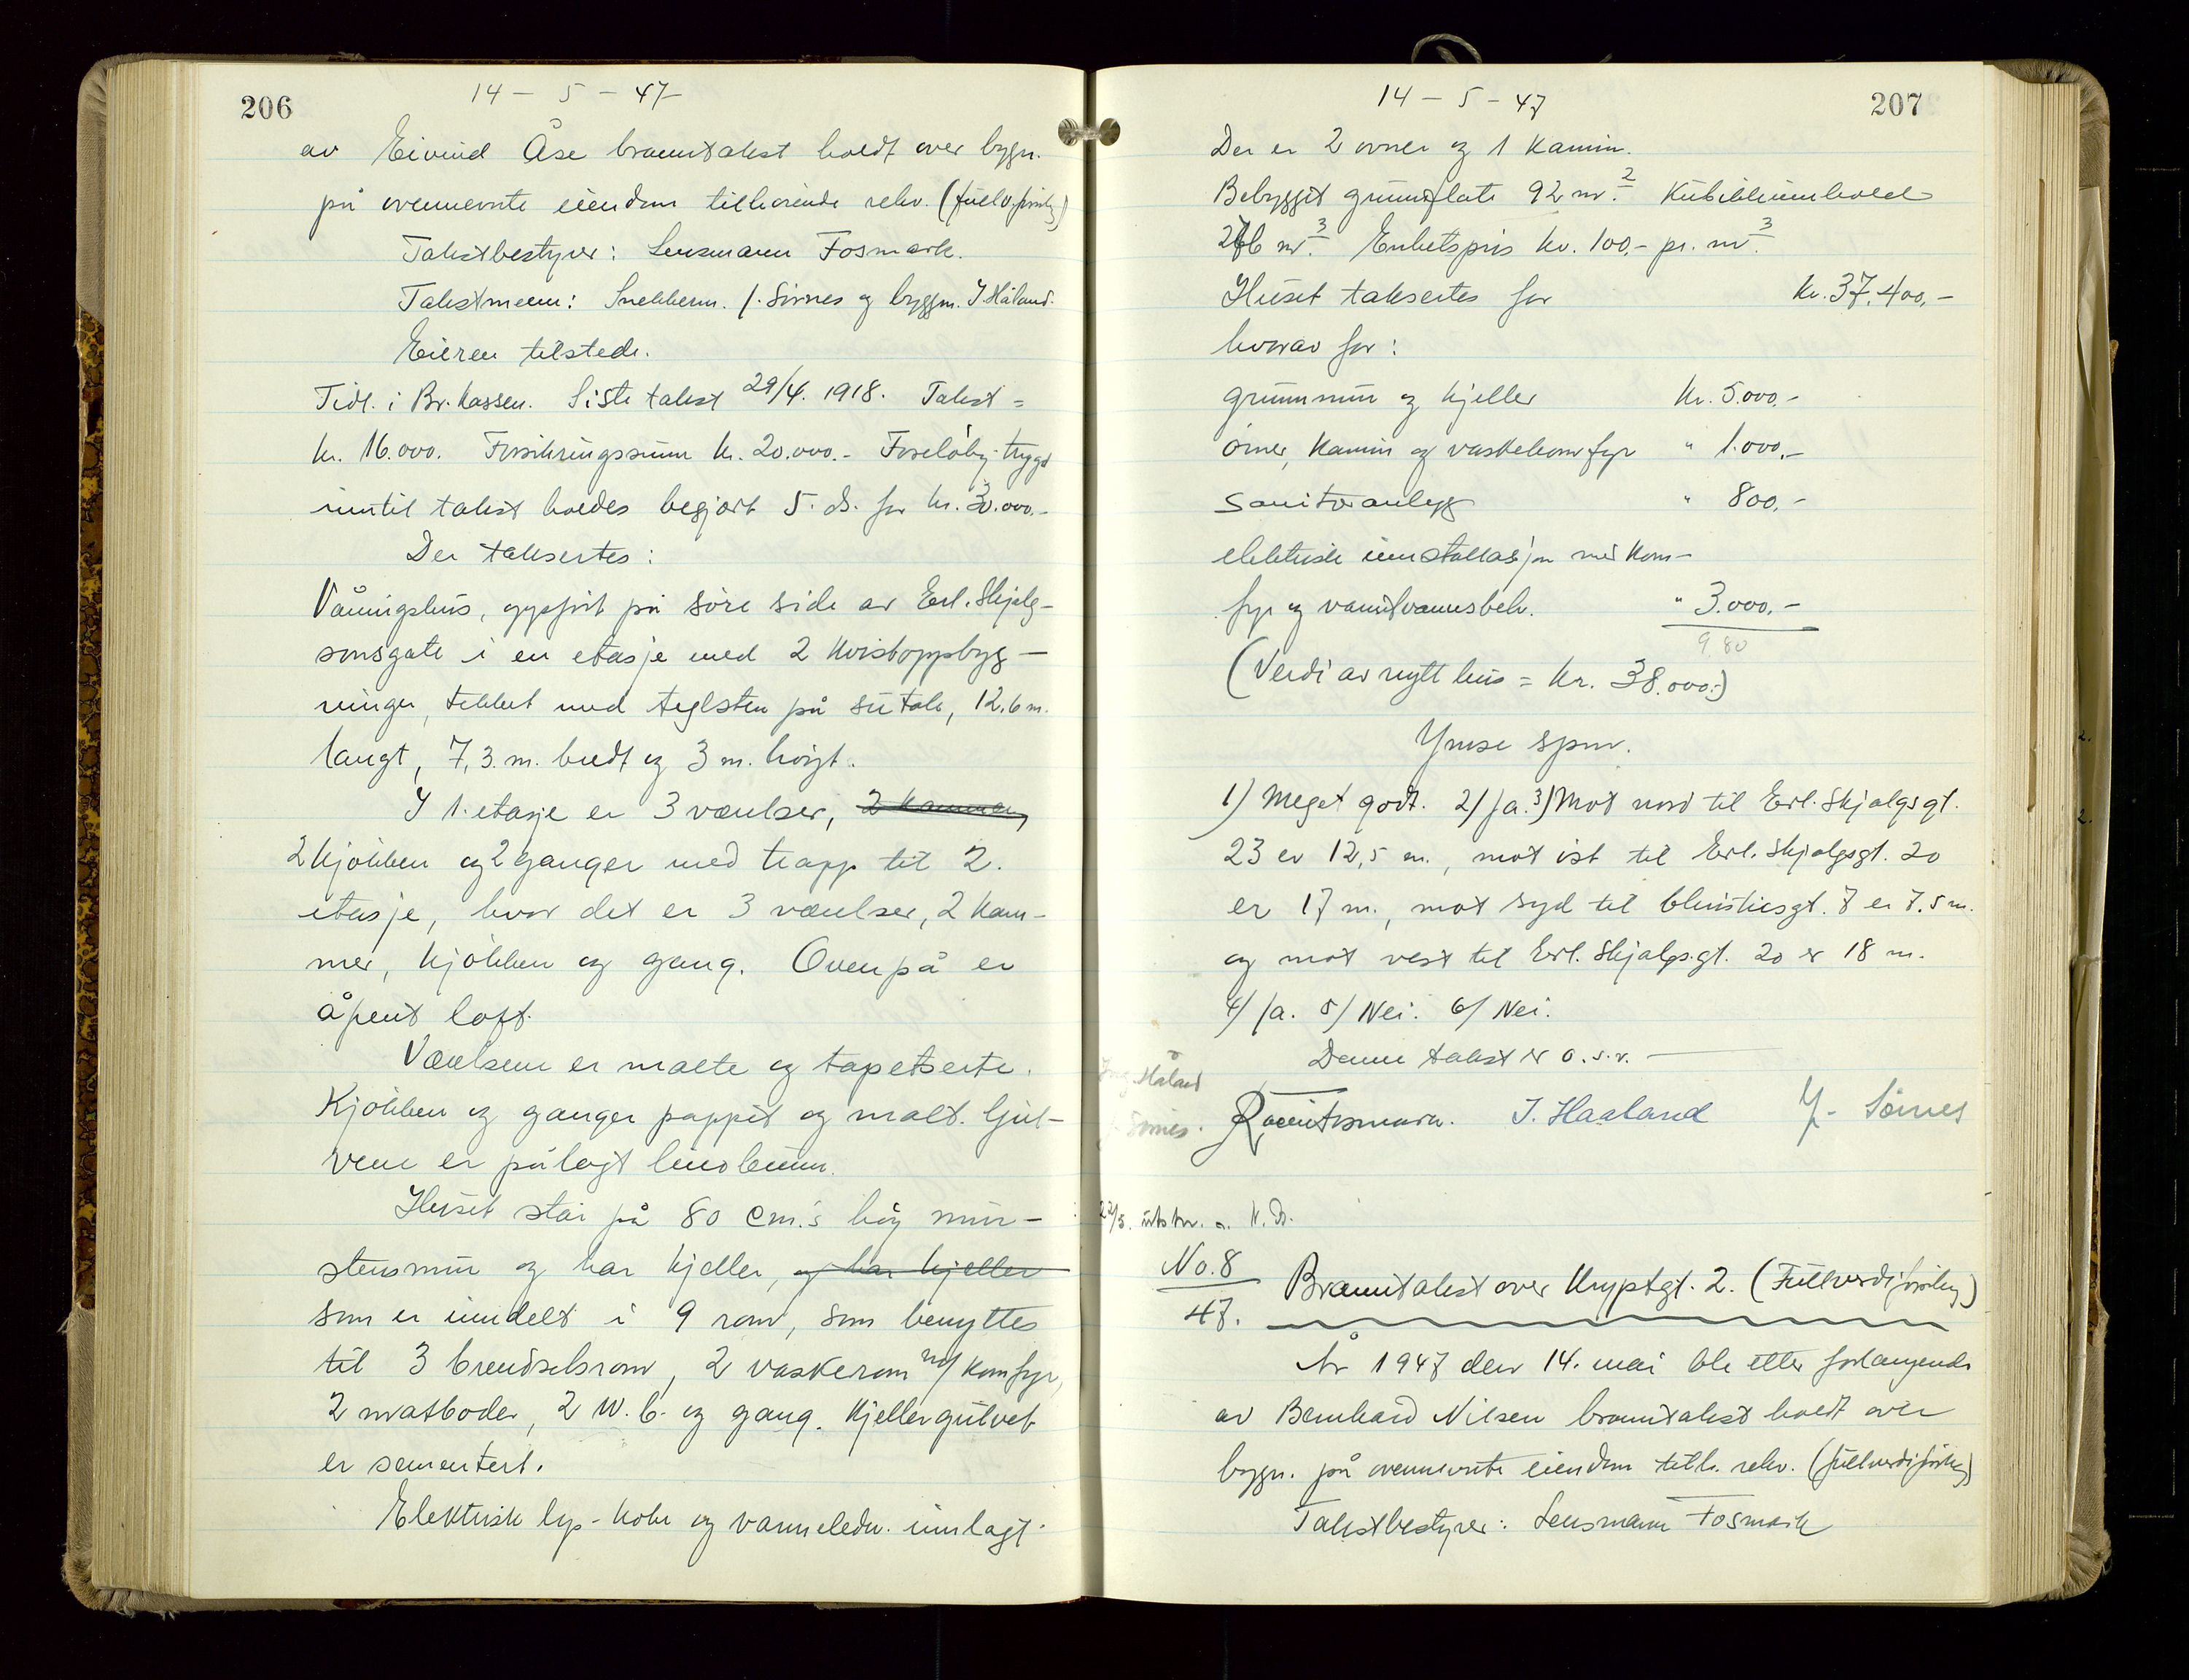 206
14 – 5 – 47
av Eivind Åse branntakst holdt over bygn.
på ovennevnte eiendom tilhørende rekv. (fullv.forsikr.)
Takstbestyrer: Lensmann Fosmark.
Takstmenn: Snekkerm. J. Sirnes og byggm. I. Håland.
Eieren tilstede.
Tidl. i Br. kassen. Siste takst 29/4. 1918. Takst =
kr. 16.000. Forsikringssum kr. 20.000.- Foreløbig trygd
inntil takst holdes begjært 5. ds. for kr. 30.000.-
Der taksertes:
Våningshus, oppført på søre side av Erl. Skjalg-
sonsgate i en etasje med 2 kvistoppbyg-
ninger, tekket med teglsten på sutak, 12.6 m.
langt, 7,3. m. bredt og 3 m. høigt.
I 1. etasje er 3 værelser, 2 kammer,
2 kjøkken og 2 ganger med trapp til 2.
etasje, hvor det er 3 værelser, 2 kam-
mer, kjøkken og gang. Ovenpå er
åpent loft.
Værelsene er malte og tapetserte.
Kjøkken og ganger pappet og malt. Gul-
vene er pålagt linoleum.
Huset står på 80 cm.s høg mur-
stensmur og har kjeller, og har kjeller
som er inndelt i 9 rom, som benyttes
til 3 brendselsrom, 2 vaskerom m/ komfyr,
2 matboder, 2 W.C. og gang. Kjellergulvet
er sementert.
Elektrisk lys- koke og vannledn. innlagt.
207
14 – 5 – 47
Der er 2 ovner og 1 kamin.
Bebygget grunnflate 92 m.2 Kubikkinnhold
276 m.3 Enhetspris kr. 100.- pr. m.3
Huset taksertes for kr. 37.400.-
hvorav for:
grunnmur og kjeller kr. 5.000.-
ovner, kamin og vaskekomfyr " 1.000.-
Sanitæranlegg " 800.-
elektrisk innstallasjon med kom-
fyr og varmtvannsbeh. " 3.000.-
9.80
(Verdi av nytt hus = kr. 38.000.-)
Ymse spm.
1) Meget godt. 2) Ja. 3) Mot nord til Erl. Skjalgsgt.
23 er 12,5 m., mot øst til Erl. Skjalgsgt. 20
er 17 m., mot syd til Christiesgt. 7 er 7.5 m.
og mot vest til Erl. Skjalgs.gt. 20 er 18 m.
4) Ja. 5) Nei. 6) Nei.
Denne takst er o.s.v.
Håland
I. Haaland J. Sirnes
Sirnes.
22/5. utskr. H. Dr.
No. 8
47.
Branntakst over Kryptgt. 2. (Fullverdiforsikr.)
År 1947 den 14. mai ble etter forlangende
av Bernhard Nilsen branntakst holdt over
bygn. på ovennevnte eiendom tilh. rekv. (fullverdiforsikr.)
Takstbestyrer: Lensmann Fosmark